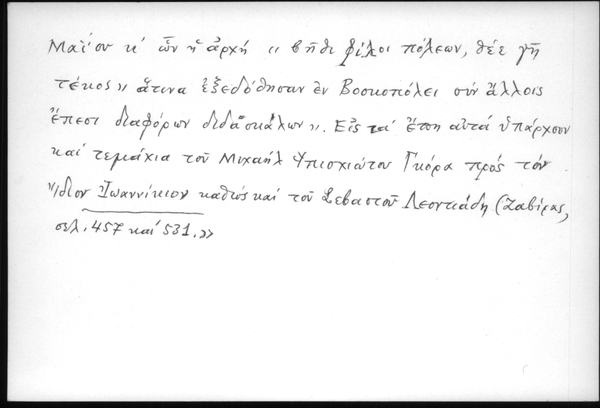 Μαΐου κ' ὧν ἡ ἀρχή « βῆθι φίλοι πόλεων, θέε γῆ
τέκος» ἅτινα ἐξεδόθησαν ἐν Βοσκοπόλει σύν ἄλλοις
ἔπεσι διαφόρων διδασκάλων». Εἰς τά ἔπη αὐτά ὑπάρχουν
καί τεμάχια τοῦ Μιχαήλ Ὑπισχιώτου Γκόρα πρός τόν
ἴδιον Ἰωαννίκιον καθώς καί τοῦ Σεβαστοῦ Λεοντιάδη (Ζαβίρας,
σελ. 457 καί 531.»